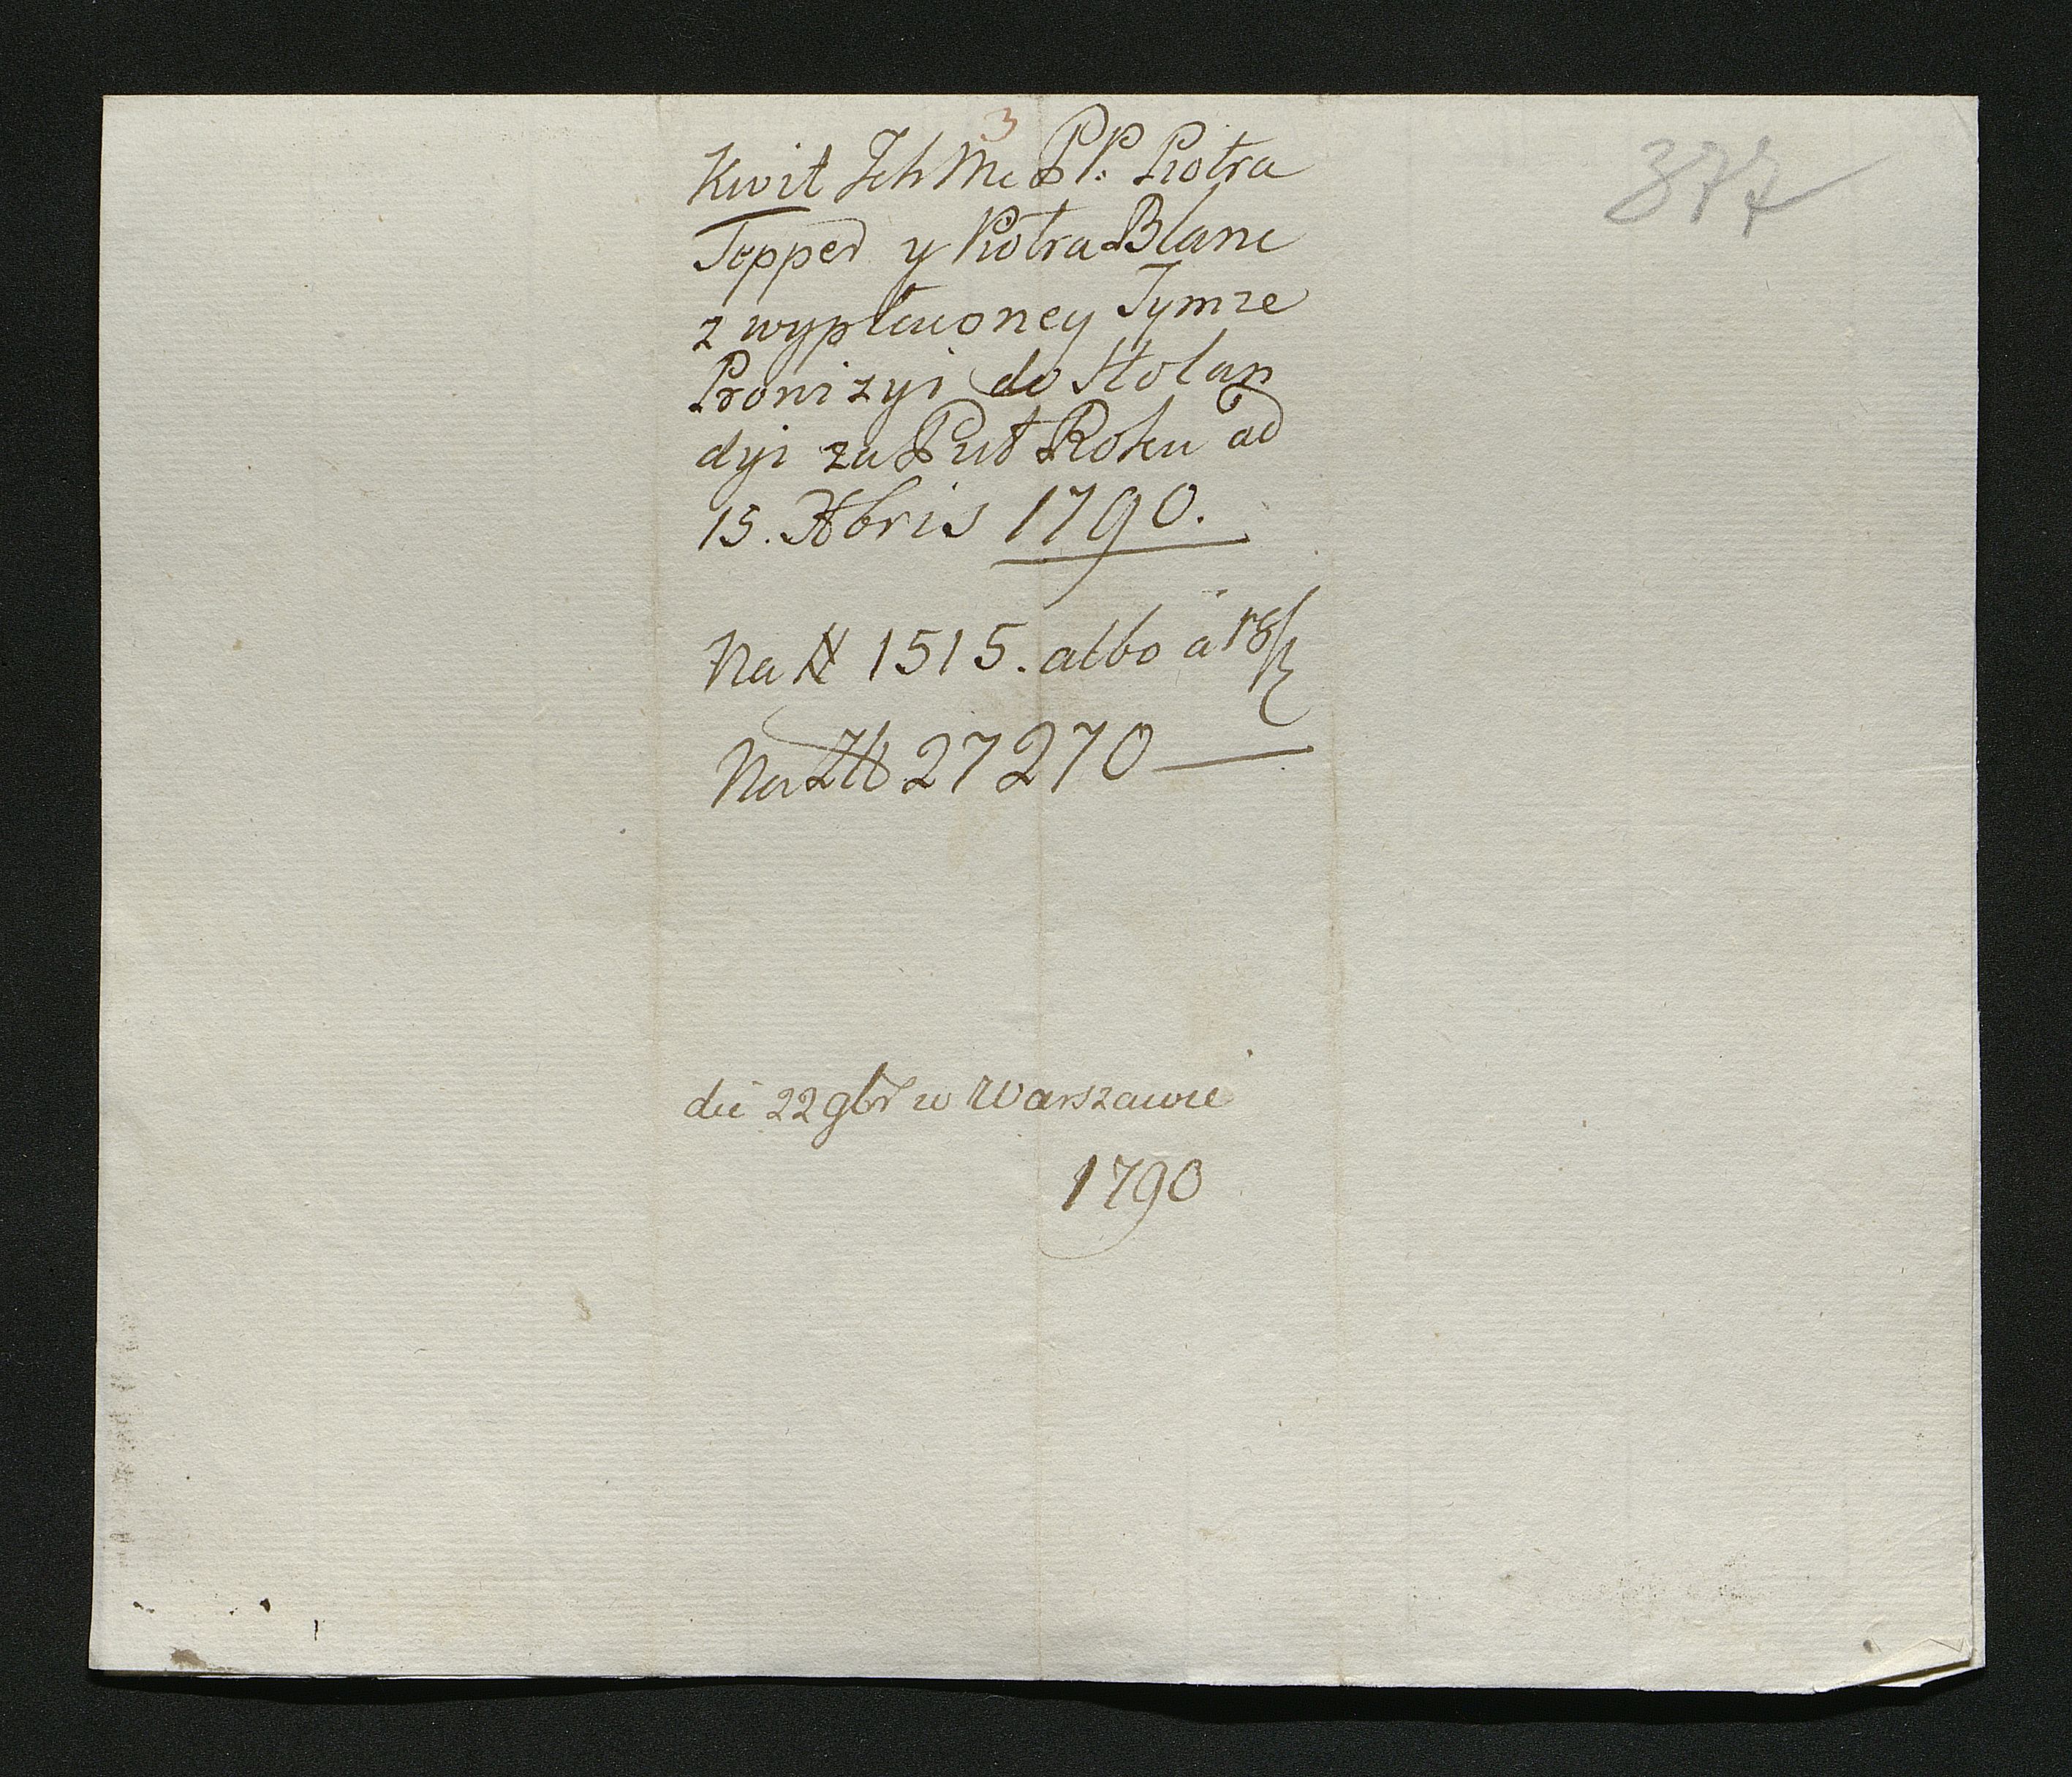 3
377
Kwit Ich Mc PP. Piotra
Tepper y Piotra Blanc
z wypłaconey Tymże
Prowizyi do Holan
dyi za Puł Roku ad
15. Xbris 1790.
Na # 1515. albo a 18/
Na Zł 27270
die 22 9br w Warszawie
1790